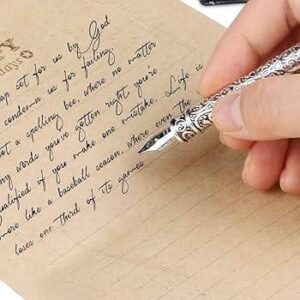 Y
days
ap set for us by God
condemn us for failing.
ot a spelling bee, where no matter
many words you've gotten right you're
qualified if you make one mistake. Life is
more like a baseball season, where even the
loses one third of its games